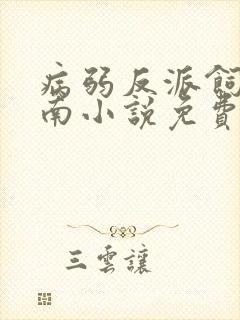 病弱反派飼
南小說免費
三雲讓